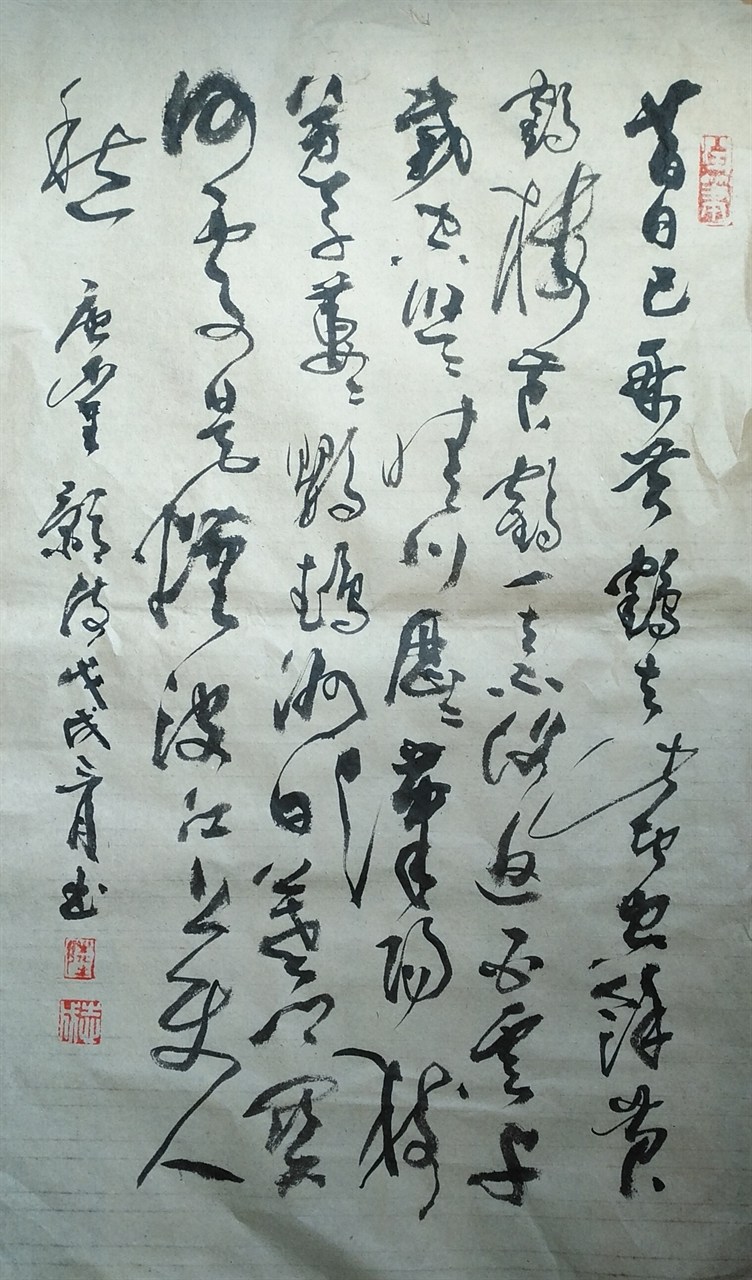 昔日已乘黄鶴去此地空餘黄
鶴樓黄鶴一去不復返白雲千
載空悠〻晴川歷〻漢陽樹
芳草萋〻鸚鵡洲日暮鄉關
何處是煙波江上使人
愁 唐崔顥詩戊戌三月书